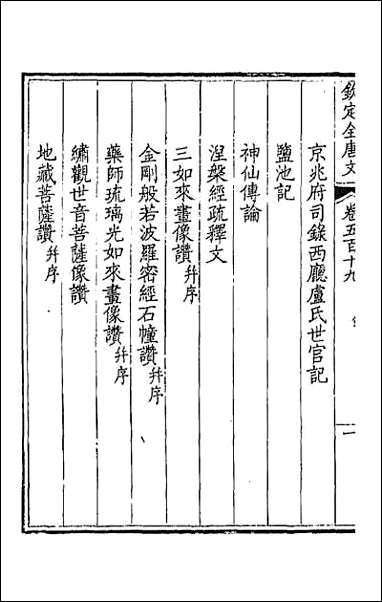 欽定全唐文
卷五百十九
一
京兆府司錄西廳盧氏世官記
鹽池記
神仙傳論
涅槃經疏釋文
三如來畫像讚并序
金剛般若波羅密經石幢讚并序
藥師琉璃光如來畫像讚并序
繡觀世音菩薩像讚
地藏菩薩讚并序